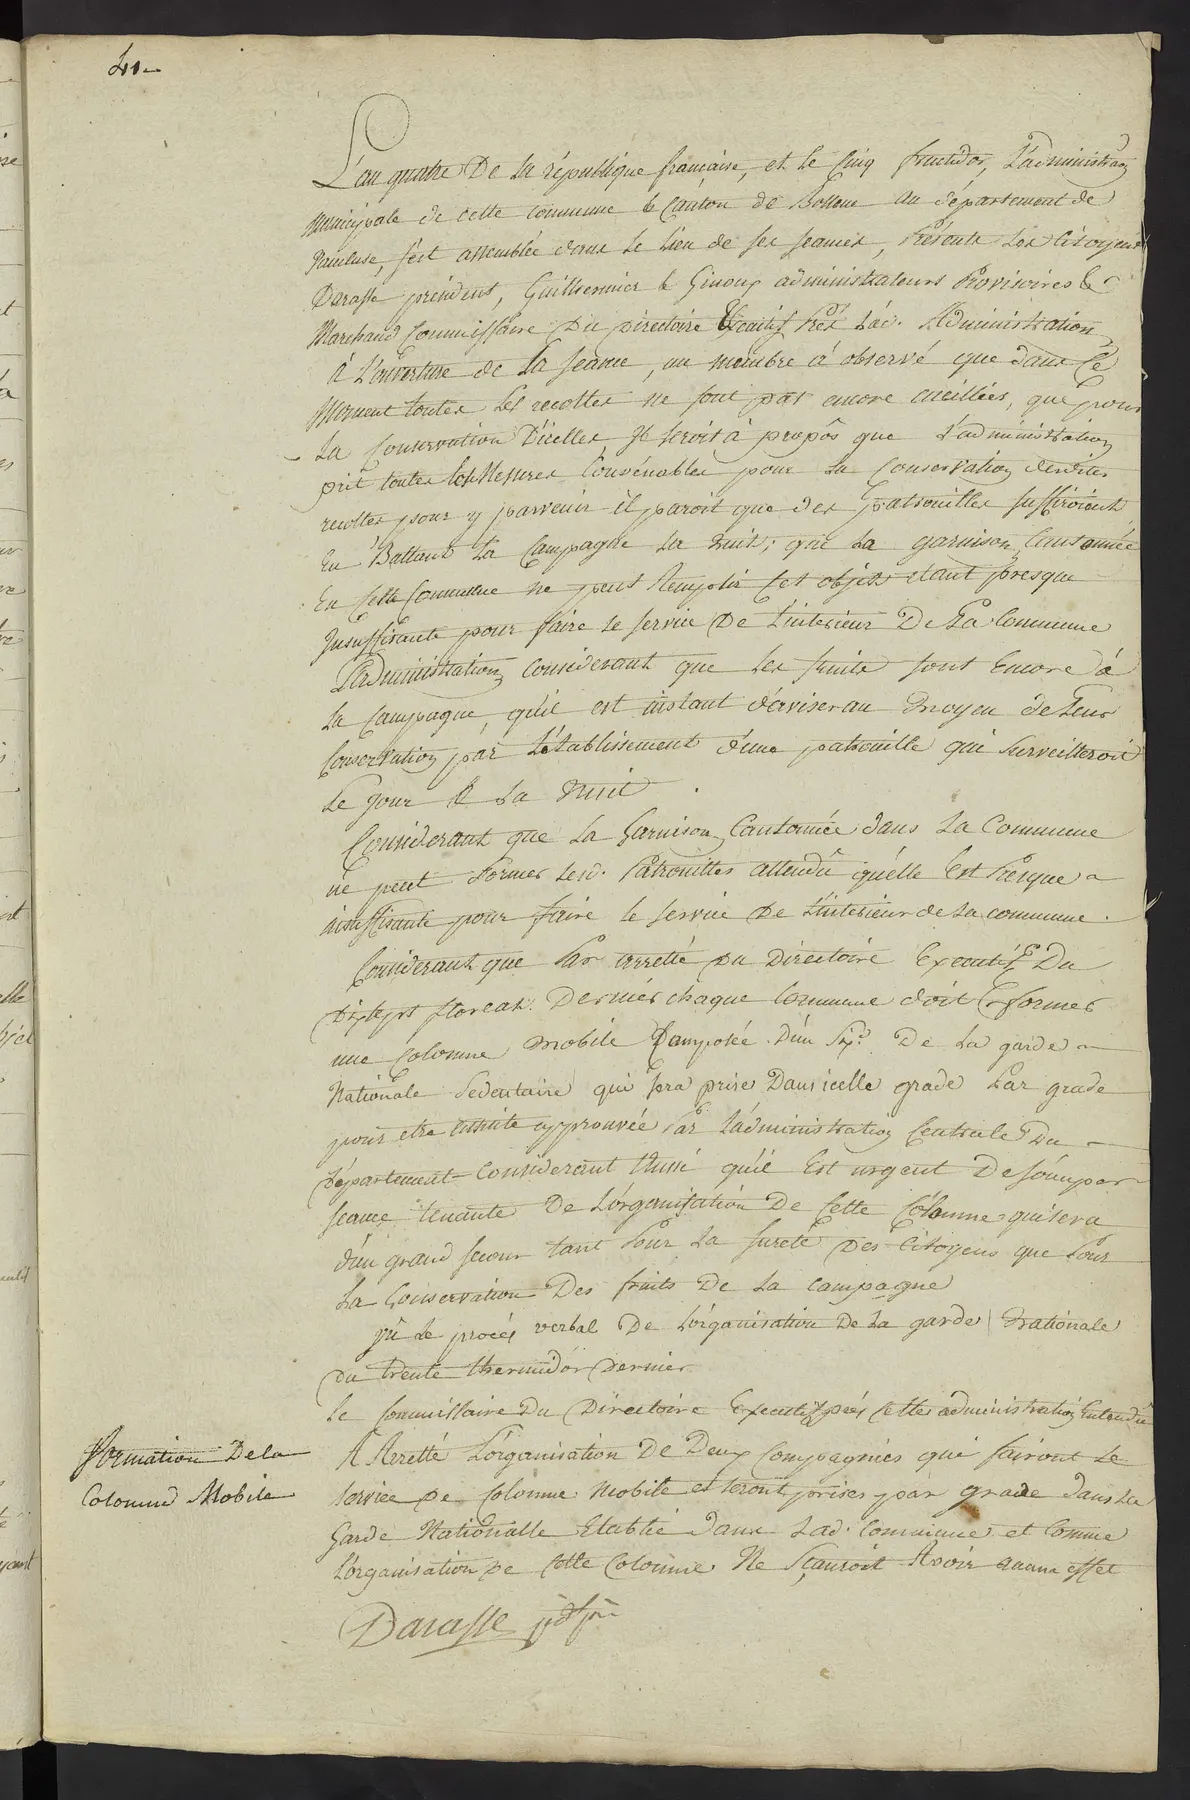 41
L'an quatre De la république française, et le Cinq fructidor, L'administration
Municipale de cette commune & Canton de Bollene au département de
Vaucluse, s'est assemblée dans le lieu de ses seances, Présents Les Citoyens
Darasse président, Guilhermier & Ginoux administrateurs Provisoires &
Marchand Commissaire Du Directoire Executif Près Lad. Administration
à L'ouverture de La séance, un membre à observé que dans Ce
Moment toutes Les recoltes ne sont pas encore cueillies, que pour
La Conservation D'icelles, Il seroit à propôs que L'administration
prit toutes les Mesures Convenables pour La Conservation desdites
recoltes pour y parvenir il paroit que des patrouilles suffiroient
En Battant La Campagne La Nuit; que La garnison Cantonnée
En Cette Commune ne peut Remplir Cet objet etant presque
Insuffisante pour faire le service De L'interieur De La Commune
L'Administration Considerant que Les fruits sont Encore à
La Campagne, qu'il est instant d'aviser au moyen de Leur
Conservation par L'établissement d'une patrouille qui Surveilleroit
Le Jour & La Nuit
Considerant que La Garnison Cantonnée dans La Commune
ne peut former Lesd. Patrouilles attendû qu'elle Est Presque
insuffisante pour faire le service De L'interieur de La commune.
Considerant que Par arretté Du Directoire Executif Du
Dixsept floreal Dernier chaque Commune doit former
une Colonne Mobile Composée D'un Six.e De La garde
Nationale Sedentaire qui sera prise Dans icelle grade Par grade
pour etre ensuite approuvée Par L'administration Centrale Du
Département Considerant Aussi qu'il Est urgent De s'ocuper
seance tenante De L'organisation De Cette Colonne qui sera
d'un grand secour tant Pour La sureté Des Citoyens que Pour
La Conservation Des fruits De La Campagne
Vû Le procés verbal De L'organisation De La garde Nationale
du trente thermidor Dernier
Le Commissaire Du Directoire Executif près Cette administration Entendu
Formation De la
Colonne Mobile
A Arretté L'organisation De Deux Compagnies qui fairont Le
service De Colonne Mobile et seront prises par grade dans La
Garde Nationalle Etablie dans Lad. Commune et Comme
L'organisation De Cette Colonne Ne Sçauroit Avoir aucun effet
Darasse